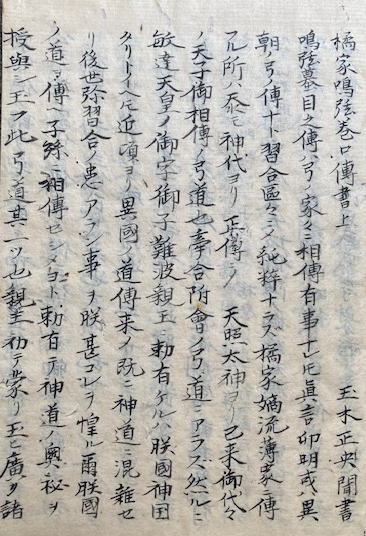 橘家鳴弦巻口傳書上
玉木正央聞書
鳴弦蟇目之傳ハ弓ノ家々ニ相傳有事ナレ𪜈眞言卯明或ハ異
朝ノ弓ノ傳ナト習合區々ニノ純粹ナラズ橘家嫡流薄家ニ傳
フル所ハ忝モ神代ヨリ正傳ノ天照太神ヨリ已来御代々
ノ天子御相傳ノ弓道也牽合附會ノ弓道ニアラズ然ルニ
敏達天皇ノ御宇御子難波親王ニ勅有ケルハ朕國神国
タリトイヘ𪜈近頃ヨリ異國ノ道傳来ノ既ニ神道ニ混雜セ
リ後世弥習合ノ患アラン事ヲ朕甚コレヲ惶ル爾朕國
ノ道ヲ傳ヘ子緜ニ相傳セシメヨト勅有テ神道ノ奥秘ヲ
授與シ玉フ此弓道其一ツ也親王仂テ蒙リ玉ヒ廣ヲ諸